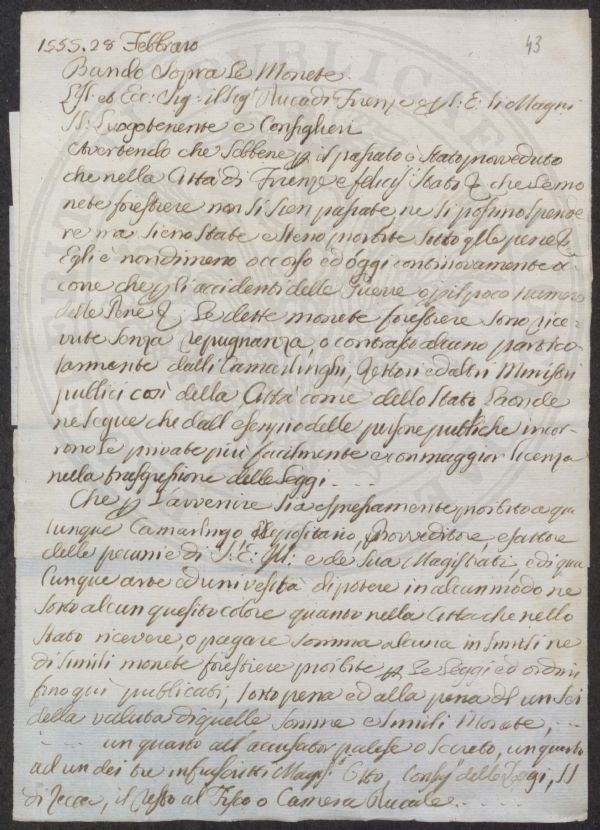 43
1555. 28 Febbraro
Bando Sopra Le Monete.
Ill: et Ecc: Sig: il Sig: Duca di Firenze e p S: E: li Magni
SS: Luogotenente e Consiglieri
Avertendo che Sebbene p il passato è stato provveduto
che nella Città di Firenze e felicis: Stato & che Le mo
nete forestiere non si sien passate ne si possino spende
re ma sieno state e sieno proibite sotto gle pene &
Egli è nondimeno occorso ed oggi continovamente oc
corre che p gli accidenti delle Guerre o p il poco numero
delle Pene & Le dette monete forestiere sono rice
vute senza repugnanza, o contrasto alcuno partico
larmente dalli Camarlinghi, Rettori ed altri Ministri
publici così della Città come dello Stato Laonde
ne segue che dall esempio delle persone publiche incor
rono le private più facilmente e con maggior licenza
nella trasgressione delle Leggi....
Che p L'avvenire sia espressamente proibito a qua
lunque Camarlingo, Depositario, Provveditore, e fattore
delle pecunie di S. E. Ill: e de Sua Magistrati, e di qua
lunque arte ed università di potere in alcun modo ne
sotto alcun quesito colore quanto nella Citta che nello
Stato ricevere, o pagare somma alcuna in simili ne
di simili monete forestiere proibite p Le Leggi ed ordini
fino qui publicati, sotto pena ed alla pena di un
della valuta di quelle somme e simili Monete,...
.... un quarto all' accusator palese o secreto, un quarto
ad un dei tre infrascritti Magis: Otto, Cons: delle Leggi, SS
di Zecca, il resto al Fisco o Camera Ducale....